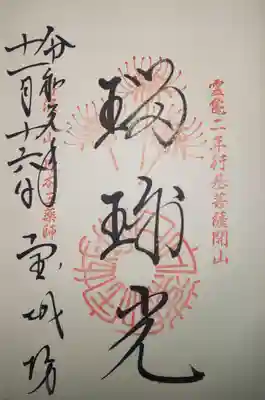 霊亀二年行基菩薩開山
瑠璃光
薬師
令和元年
十一月十六日 宝城坊